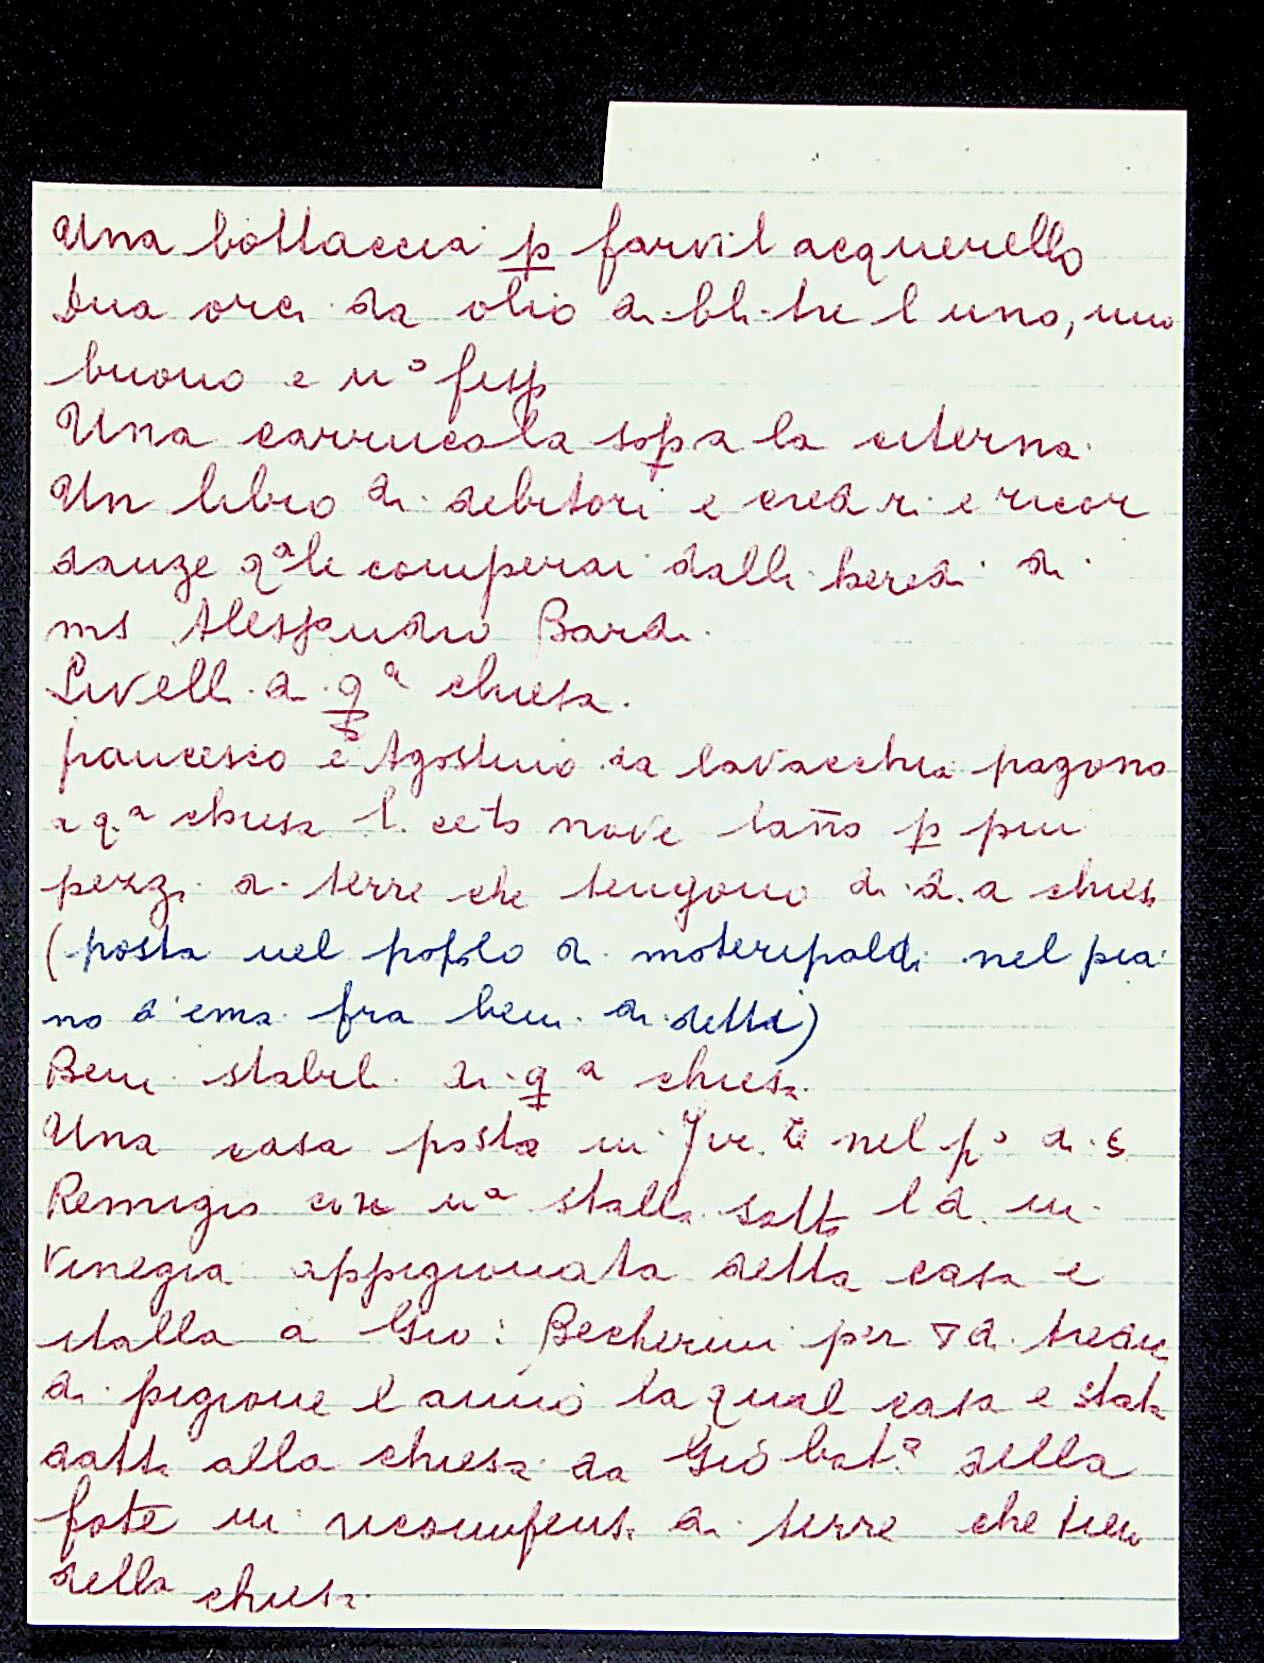 Una bottaccia p farvi l acquerello
Dua orci da olio di bli tre l uno, uno
buono e uº fesso
Una carrucola sopa la citerna
Un libro di debitori e cred ri e ricor
danze qale comperai dalli heredi di
ms Alessandro Bardi
Livelli di qª chiesa.
francesco e Agostino da lavacchia pagono
a q.ª chiesa l. ceto nove lano p piu
pezzi di terre che tengono di d.a chiesa
(posta nel popolo di moteripaldi nel pia
no d'ema fra beni di detta)
Beni stabili di qª chiesa
Una casa posta in nel pº di S
Remigio con uª stalla sotto l d. in
vinegia appigionata detta casa e
stalla a Gio: Becherini per di
di pigione l anno la qual casa e stata
datta alla chiesa da Gio batª della
fote in ricompensa di terre che
della chiesa